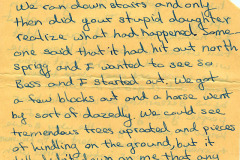 We ran down stairs and only
then did your stupid daughter
realize what had happened. Some
one said that it had hit out north
sprigg and I wanted to see so
Bess and I started out. We got
a few blocks out and a horse went
by sort of dazedly. We could see
tremendous trees uprooted and pieces
of kindling on the ground, but it
down on me that any